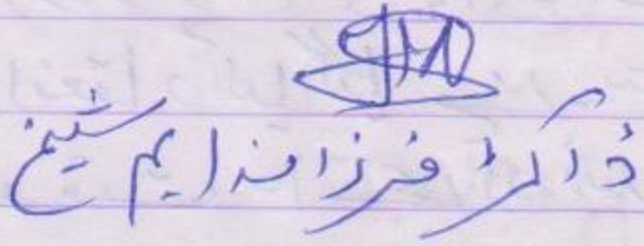 ڈاکٹر فرزانہ ایم شیخ